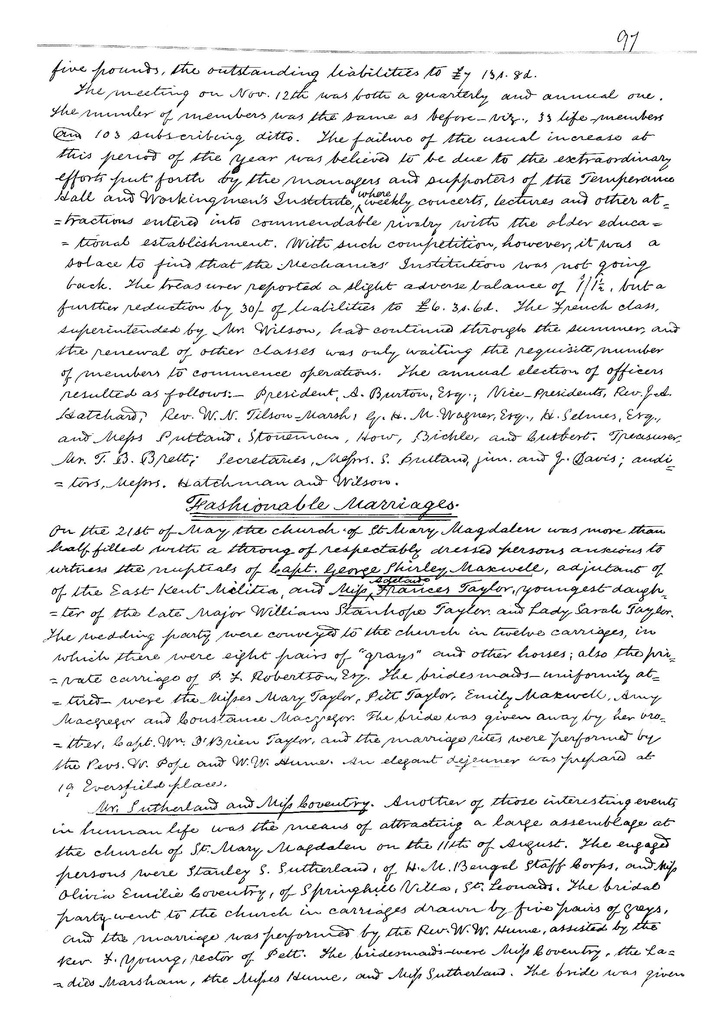 97
five pounds, the outstanding liabilities to £7 13s. 8d.
The meeting on Nov. 12th was both a quarterly and annual one.
The number of members was the same as before – viz., 33 life-members
an 103 subscribing ditto. The failure of the usual increase at
this period of the year was believed to be due to the extraordinary
efforts put forth by the managers and supporters of the Temperance
Hall and Workingmen's Institute, where weekly concerts, lectures and other at-
=tractions entered into commendable rivalry with the older educa=
=tional establishment. With such competition, however, it was a
solace to find that the Mechanics' Institution was not going
back. The treasurer reported a slight adverse balance of 1/1½, but a
further reduction by 30/- of liabilities to £6. 3s. 6d. The French class,
superintended by Mr. Wilson, had continued through the summer, and
the renewal of other classes was only waiting the requisite number
of members to commence operations. The annual election of officers
resulted as follows:– President, A. Burton, Esq.; Vice-Presidents, Rev. J. A.
Hatchard, Rev. W. N. Tilson-Marsh, G. H. M. Wagner, Esq., H. Selmes, Esq.,
and Mess Putland, Stoneman, How, Bickle, and Cutbert. Treasurer,
Mr. T. B. Brett; Secretaries, Messrs. S. Putland, jun. and J. Davis; audi=
=tors, Messrs. Hatchman and Wilson.
Fashionable Marriages.
On the 21st of May the church of St Mary Magdalen was more than
half filled with a throng of respectably dressed persons anxious to
witness the nuptials of Capt. George Shirley Maxwell, adjutant of
of the East Kent Militia, and Miss Adelaide Frances Taylor, youngest daugh-
=ter of the late Major William Stanhope Taylor and Lady Sarah Taylor.
The wedding party were conveyed to the church in twelve carriages, in
which there were eight pairs of "grays" and other horses; also the pri=
=vate carriage of P. F. Robertson, Esq. The bridesmaids – uniformly at=
=tired – were the Misses Mary Taylor, Pitt Taylor, Emily Maxwell, Amy
Macgregor and Constance Macgregor. The bride was given away by her bro=
=ther, Capt. Wm. O'Brien Taylor, and the marriage rites were performed by
the Revs. W. Pope and W. W. Hume. An elegant dejeuner was prepared at
19 Eversfield place.
Mr. Sutherland and Miss Coventry. Another of those interesting events
in human life was the means of attracting a large assemblage at
the church of St. Mary Magdalen on the 11th of August. The engaged
persons were Stanley S. Sutherland, of H. M. Bengal Staff Corps, and Miss
Olivia Emilie Coventry, of Springhill Villa, St. Leonads. The bridal
party went to the church in carriages drawn by five pairs of greys,
and the marriage was performed by the Rev. W. W. Hume, assisted by the
Rev. F. Young, rector of Pett. The bridesmaids were Miss Coventry, the La=
=dies Marsham, the Misses Hume, and Miss Sutherland. The bride was given